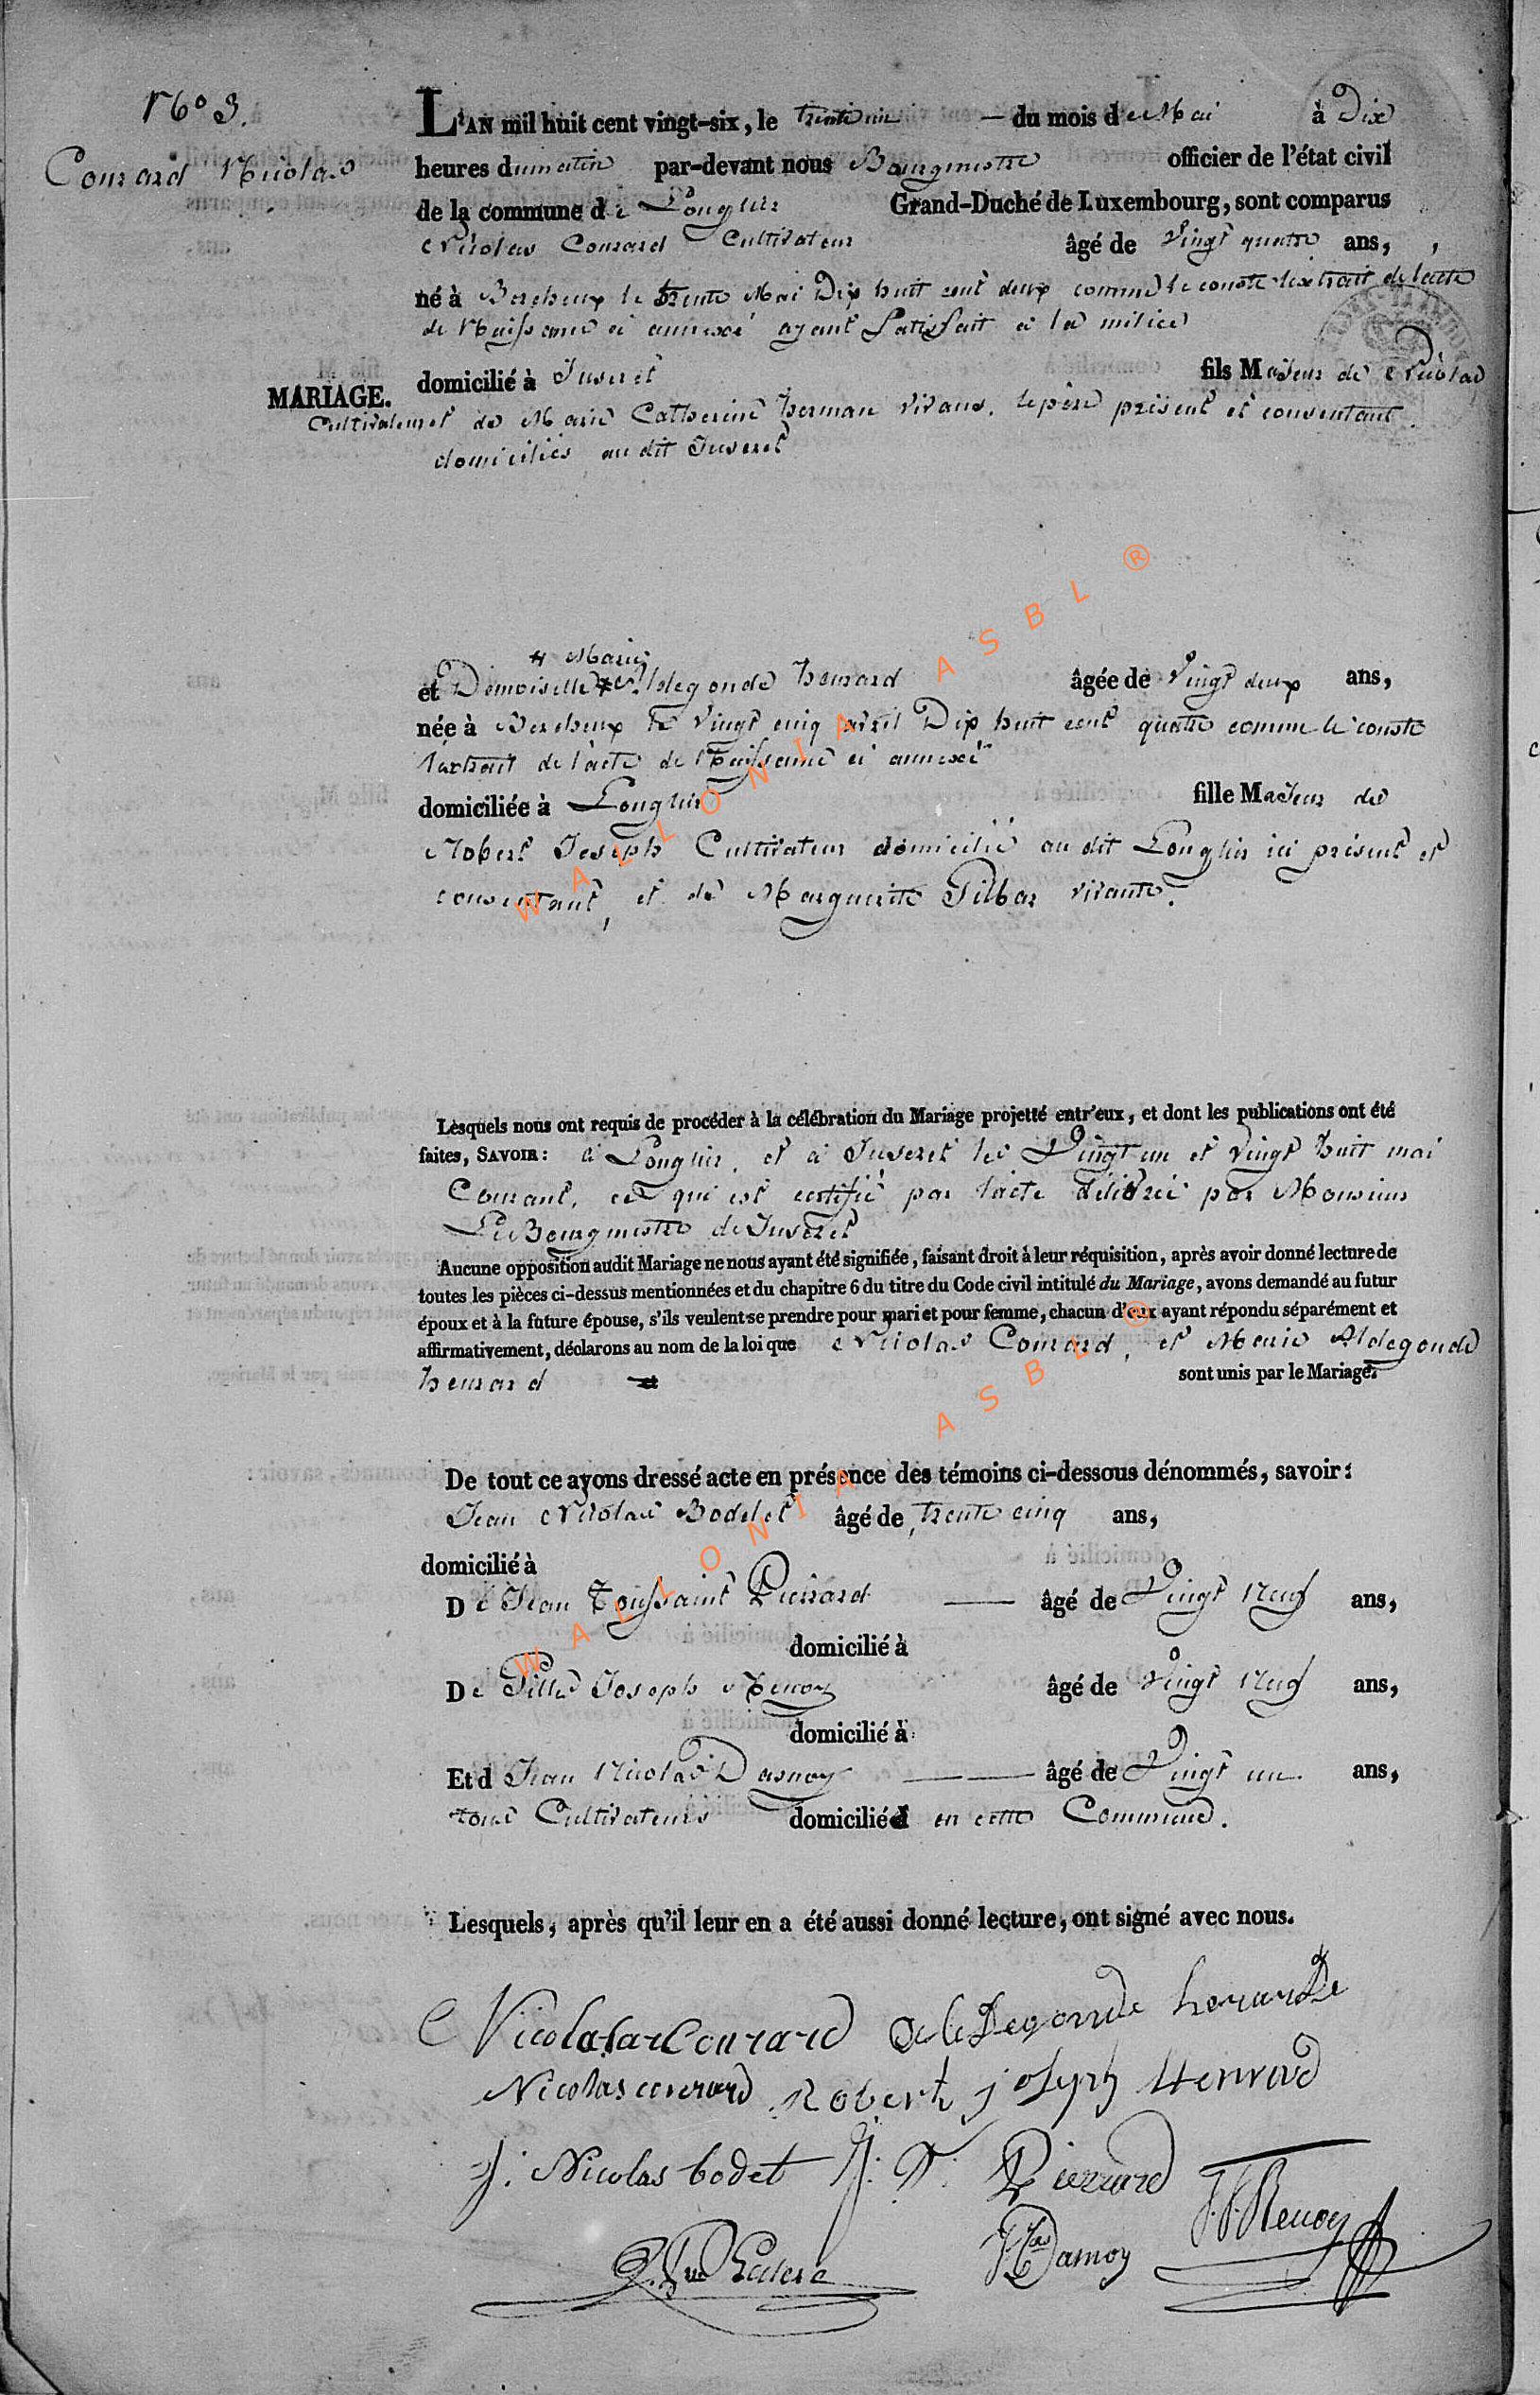 N.º 3.
Conrard Nicolas
L'AN mil huit cent vingt-six, le trente un — du mois de Mai à Dix
heures du matin par-devant nous Bourgmestre officier de l'état civil
de la commune de Longlier Grand-Duché de Luxembourg, sont comparus
Nicolas Conrard Cultivateur âgé de vingt quatre ans,
né à Bercheux le trente Mai Dix huit cent deux comme le conste l'extrait de l'acte
de Naissance ci annexé ayant Satisfait à la milice
domicilié à Juseret fils Majeur de Nicolas
MARIAGE.
Cultivateur et de Marie Catherine herman vivans, le père présent et consentant
domiciliés au dit Juseret
Marie
et Demoiselle Aldegonde henrard âgée de Vingt deux ans,
née à Bercheux le vingt cinq avril Dix huit cent quatre comme le conste
l'extrait de l'acte de Naissance ci annexé
domiciliée à Longlier fille Majeur de
Robert Joseph Cultivateur domicilié au dit Longlier ici présent et
consentant, et de Marguerite Pilbar vivante.
Lesquels nous ont requis de procéder à la célébration du Mariage projetté entr'eux, et dont les publications ont été
faites, SAVOIR: à Longlier, et à Juseret les Vingt un et vingt huit mai
Courant, ce qui est certifié par l'acte délivré par Monsieur
Le Bourgmestre de Juseret
Aucune opposition audit Mariage ne nous ayant été signifiée, faisant droit à leur réquisition, après avoir donné lecture de
toutes les pièces ci-dessus mentionnées et du chapitre 6 du titre du Code civil intitulé du Mariage, avons demandé au futur
époux et à la future épouse, s'ils veulent se prendre pour mari et pour femme, chacun d'eux ayant répondu séparément et
affirmativement, déclarons au nom de la loi que Nicolas Conrard, et Marie Aldegonde
henrard sont unis par le Mariage.
De tout ce avons dressé acte en présence des témoins ci-dessous dénommés, savoir:
Jean Nicolas Bodelet âgé de trente cinq ans,
domicilié à
De Jean Toussaint Pierrard — âgé de Vingt Neuf ans,
domicilié à
De Joseph Renoy âgé de Vingt Neuf ans,
domicilié à
Et d Jean Nicolas Dasnoy — âgé de Vingt un ans,
tous Cultivateurs domiciliés en cette Commune.
Lesquels, après qu'il leur en a été aussi donné lecture, ont signé avec nous.
Nicolas Conrard henrard
Nicolas conrard Robert joseph Henrard
J. Nicolas bodet J. T. Pierrard
Dasnoy Renoy
WALLONIA ASBL ®
WALLONIA ASBL ®